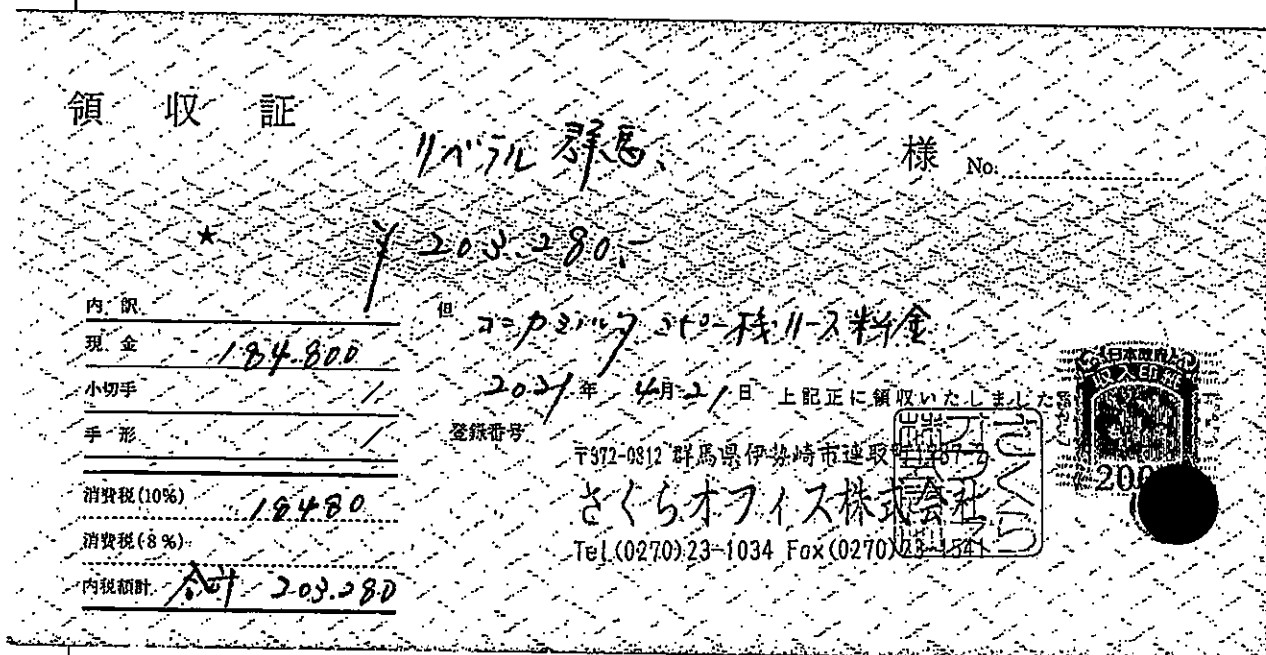 領収証
リベラル群馬 様 No.
★ ¥203,280.-
内訳
現金 184,800
小切手 /
手形 /
消費税(10%) 18480
消費税(8%)
内税額計 合計 203,280
但 コニカミノルタ コピー機リース料金
2021年 4月21日 上記正に領収いたしました
登録番号
〒372-0812 群馬県伊勢崎市連取町
さくらオフィス株式会社
Tel.(0270)23-1034 Fax(0270)23-1541
日本政府
収入印紙
200